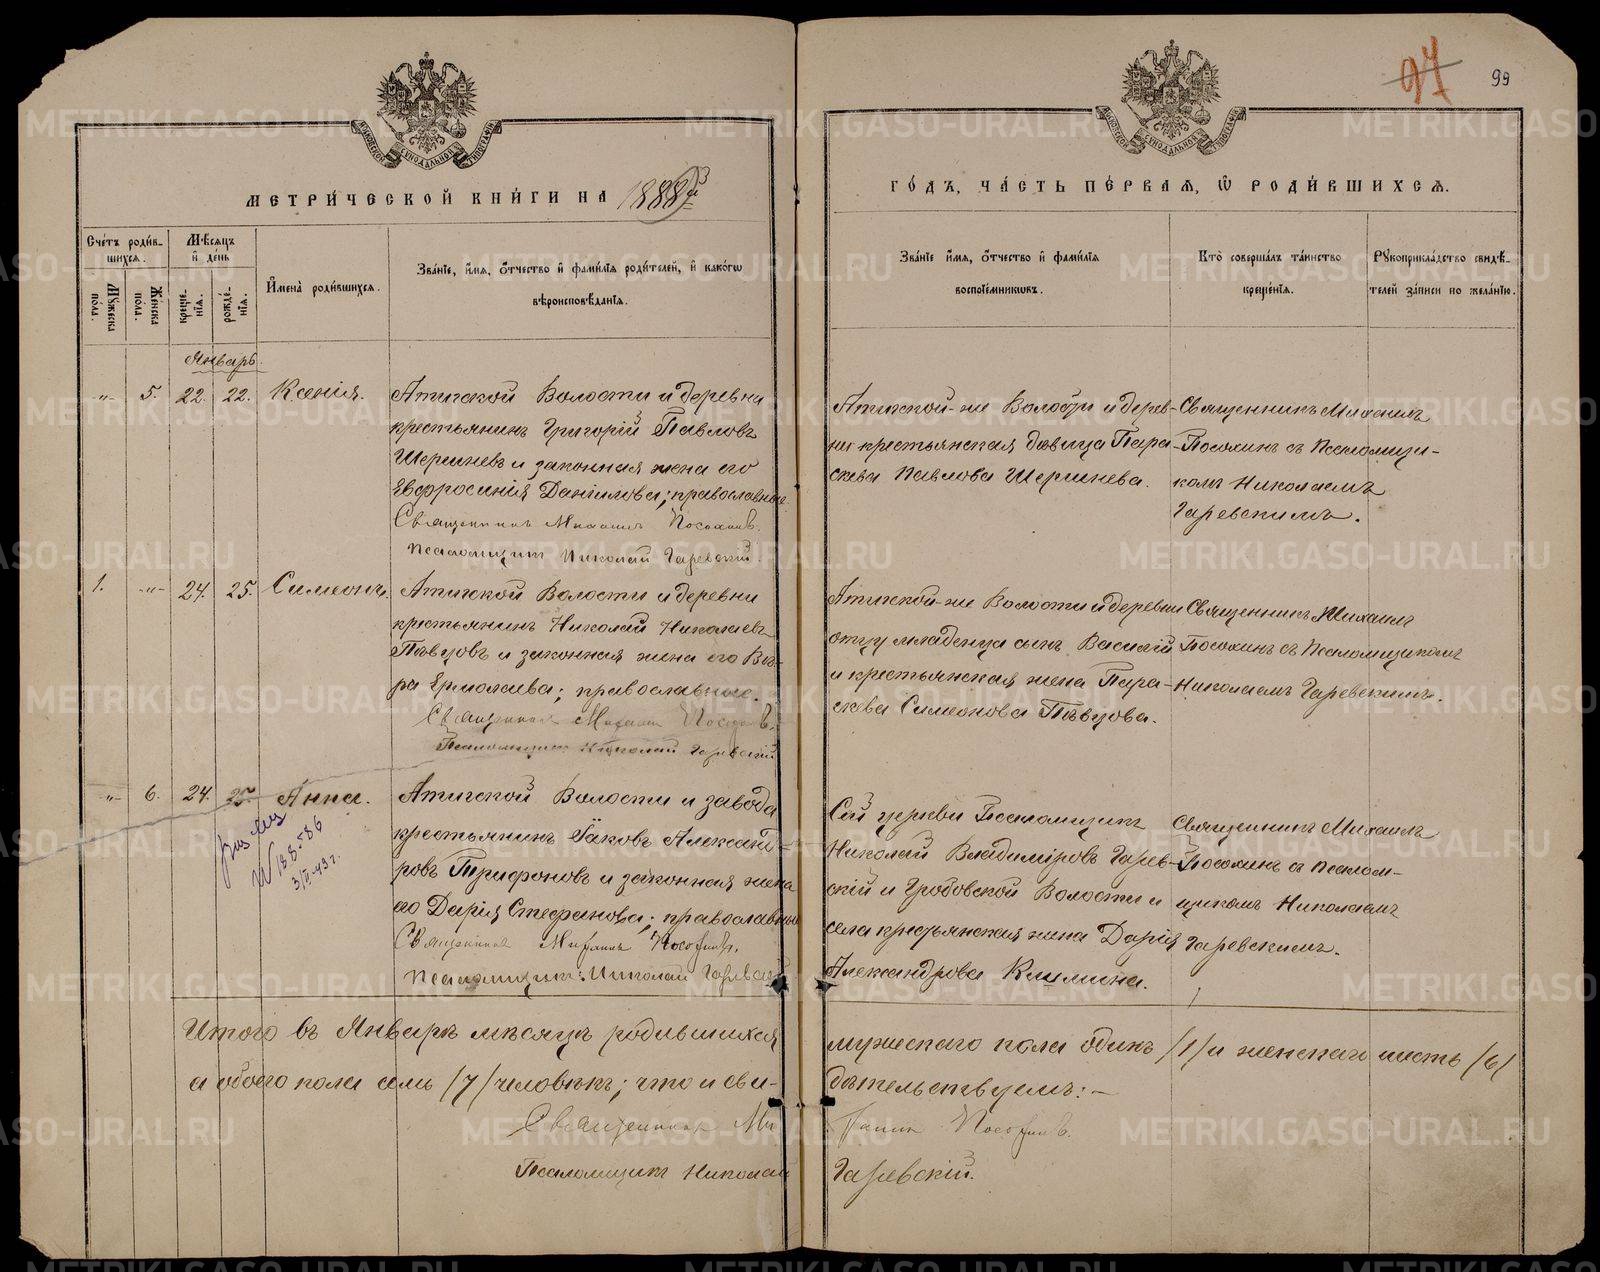 97
99
МОСКОВСКОЙ СѴНОДАЛЬНОЙ ТИПОГРАФІИ
МОСКОВСКОЙ СѴНОДАЛЬНОЙ ТИПОГРАФІИ
МЕТРИ́ЧЕСКОЙ КНИ́ГИ НА 1888й
ГО́ДЪ, ЧА́СТЬ ПЕ́РВАЯ, Ѡ РОДИ́ВШИХСЯ.
Сче́тъ роди́в-
шихся.
Мѣсяцъ
и҆ де́нь
Мужеска
пола.
Женска
пола.
креще-
нїя.
рожде́-
нїя.
И҆мена̀ роди́вшихся.
Зва́нїе, и҆́мя, ѻ҆́тчество и҆ фами́лїя роди́телей, и҆ како́гѡ
вѣроисповѣ́данїя.
Зва́нїе и҆́мя, ѻ҆́тчество и҆ фами́лїя
воспоїе́мникѡвъ.
Кто̀ соверша́лъ та́инство
креще́нїя.
Рꙋкоприкла́дство свидѣ́-
телей за́писи по жела́нїю.
Январь.
-"- 5. 22. 22. Ксенія.
Атигской Волости и деревни
крестьянинъ Григорій Павловъ
Шершневъ и законная жена его
Евфросинія Даніилова; православные.
Священникъ Михаилъ Посохинъ.
Псаломщикъ Николай Гаревскій.
Атигской-же Волости и дерев-
ни крестьянская дѣвица Пара-
скева Павлова Шершнева.
Священникъ Михаилъ
Посохинъ съ Псаломщи-
комъ Николаемъ
Гаревскимъ.
1. -"- 24. 25. Симеонъ.
Атигской Волости и деревни
крестьянинъ Николай Николаевъ
Пѣвцовъ и законная жена его Вѣ-
ра Ермолаева; православные.
Священникъ Михаилъ Посохинъ.
Псаломщикъ Николай Гаревскій
Атигской-же Волости и деревни
отцу младенца сынъ Василій
и крестьянская жена Пара-
скева Симеонова Пѣвцова.
Священникъ Михаилъ
Посохинъ съ Псаломщикомъ
Николаемъ Гаревскимъ.
-"- 6. 24. 25. Анна.
W 188-586
3/V-43 г.
Атигской Волости и завода
крестьянинъ Іаковъ Александ-
ровъ Трифоновъ и законная жена
его Дарія Стефанова; православные
Священникъ Михаилъ Посохинъ.
Псаломщикъ: Николай Гаревскій
Сей церкви Псаломщикъ
Николай Владиміровъ Гарев-
скій и Гробовской Волости и
села крестьянская жена Дарія
Александрова Климина.
Священникъ Михаилъ
Посохинъ съ Псалом-
щикомъ Николаемъ
Гаревскимъ.
Итого въ Январѣ мѣсяцѣ родившихся
мужескаго пола одинъ /1/ и женскаго шесть /6/
а обоего пола семь /7/ человѣкъ; что и сви-
дѣтельствуемъ:-
Священникъ Михаилъ Посохинъ.
Псаломщикъ Николай Гаревскій.
METRIKI.GASO-URAL.RU